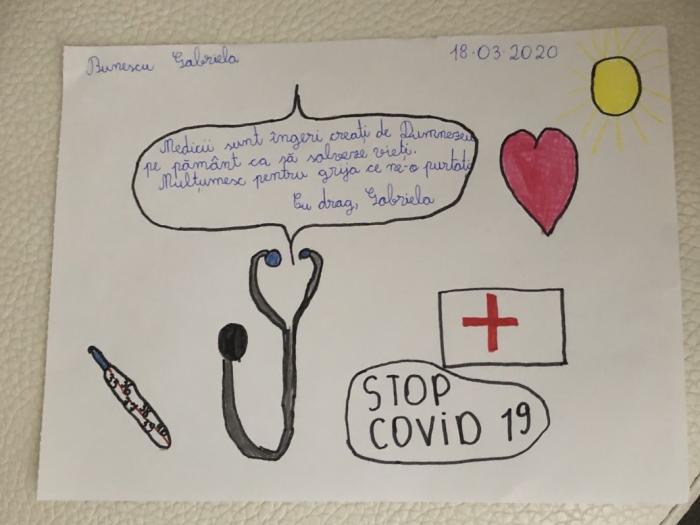 Bunescu Gabriela
18.03.2020
Medicii sunt îngeri creați de Dumnezeu
pe pământ ca să salveze vieți.
Mulțumesc pentru grija ce ne-o purtați
Cu drag, Gabriela
35 36 37 38 39 40
STOP
COVID 19